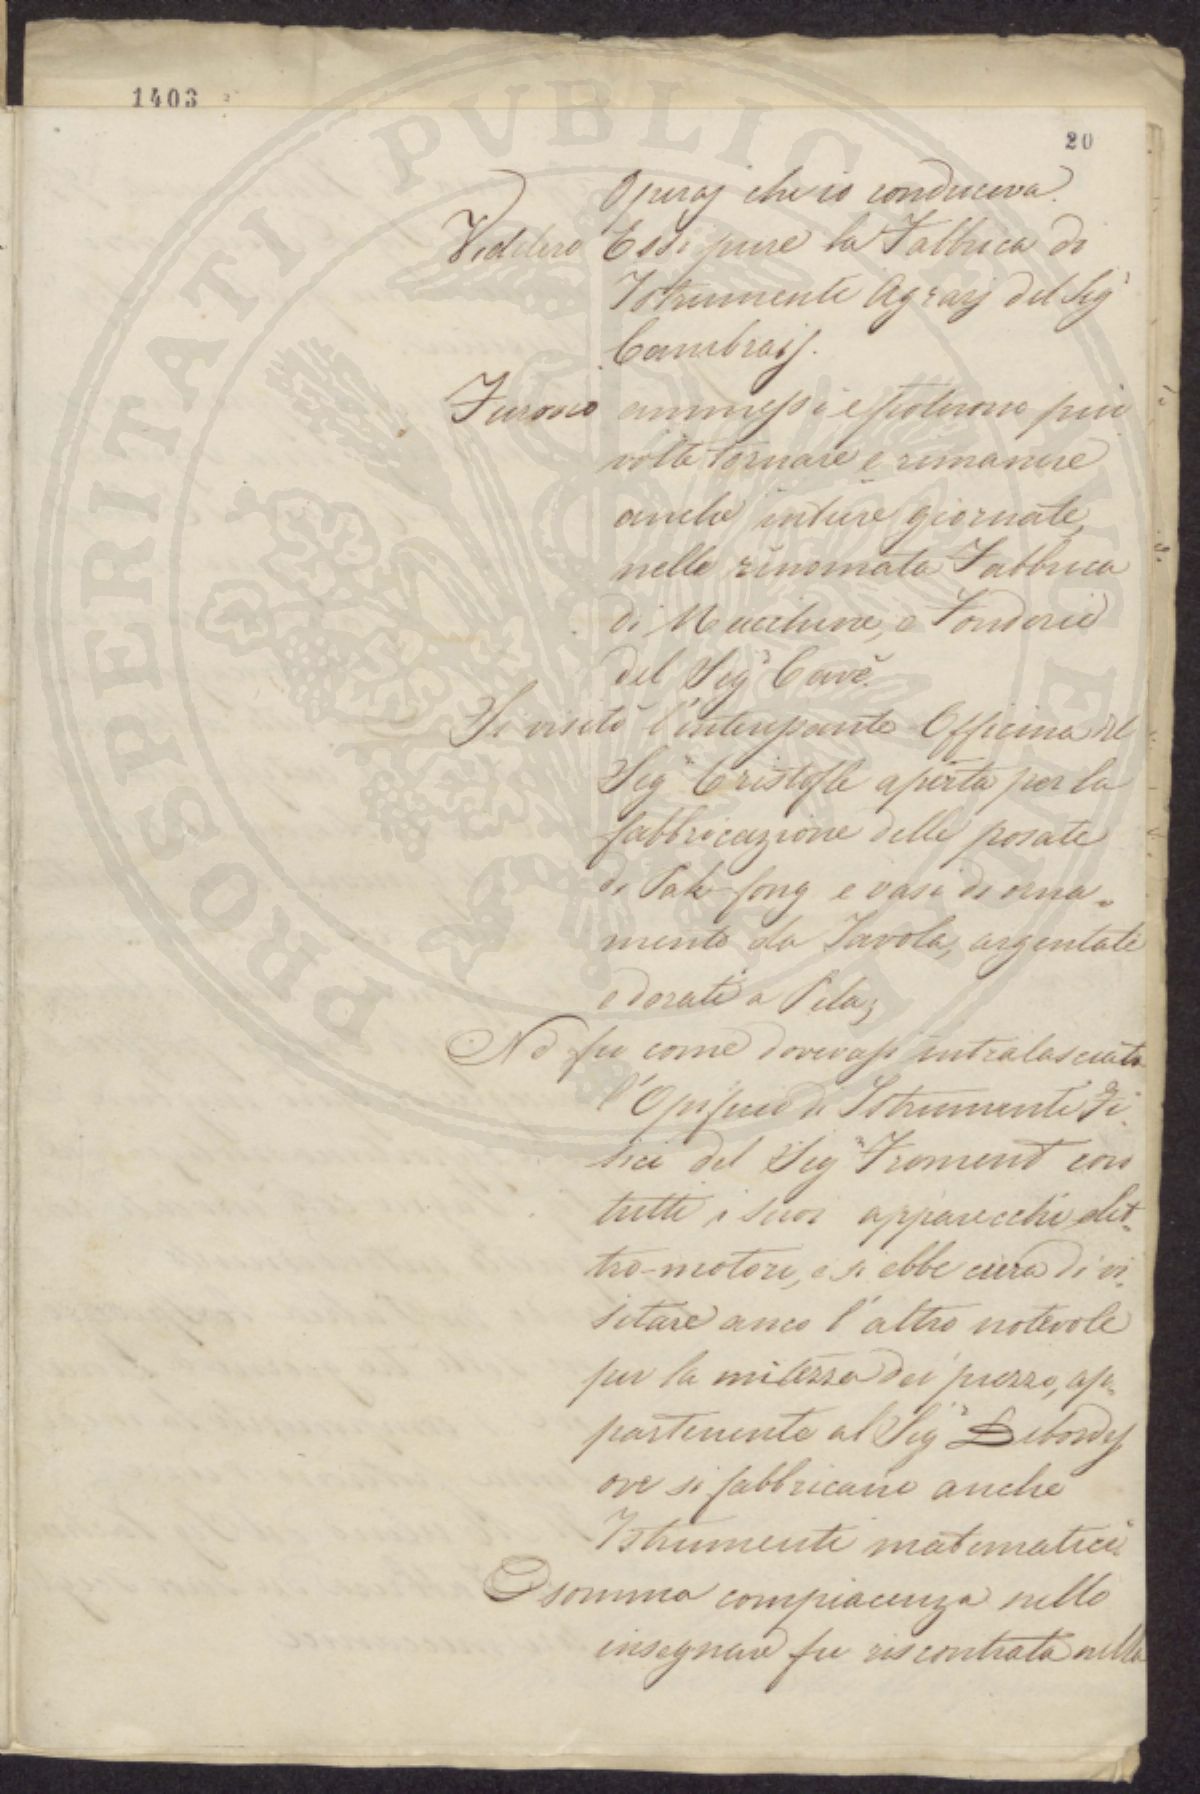 1403
20
Operaj che io conduceva.
Viddero Essi pure la Fabbrica di
Istrumenti Agrarj del Sig.r
Cambraij.
Furono ammessi e poterono più
volte tornare e rimanere
anche intiere giornate,
nella rinomata Fabbrica
di Macchine, e Fonderie
del Sig.r Cavè.
Si visitò l'interessante Officina del
Sig.r Cristofle aperta per la
fabbricazione delle posate
di Pak-fong e vasi di orna=
mento da Tavola, argentati
e dorati a Pila;
Nè fu come dovevasi intralasciato
l'Opificio di Istrumenti Fi=
sici del Sig.r Froment con
tutti i suoi apparecchi elet=
tro-motori, e si ebbe cura di vi=
sitare anco l'altro notevole
per la mitezza dei prezzi, ap=
partenente al Sig.r Lebordes
ove si fabbricano anche
Istrumenti matematici.
E somma compiacenza nello
insegnare fu riscontrata nella
PROSPERITATI PVBLICAE